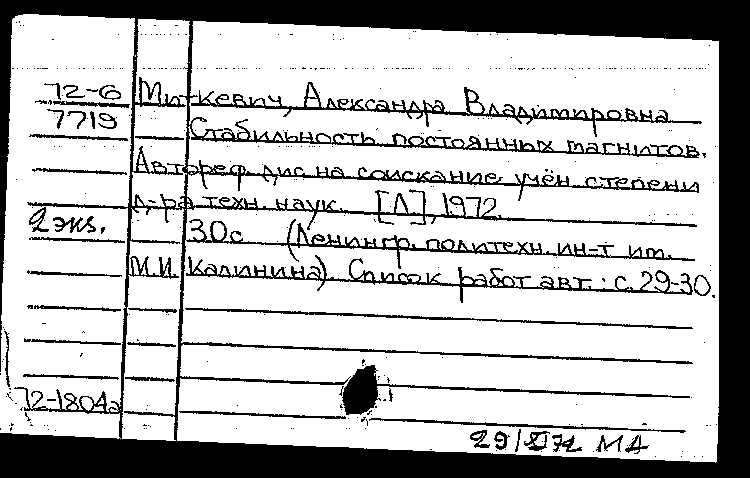 72-6 Миткевич, Александра Владимировна
7719 Стабильность постоянных магнитов.
Автореф. дис. на соискание учён. степени
д-ра техн. наук. [Л.], 1972.
2 экз. 30с (Ленингр. политехн. ин-т им.
М.И. Калинина). Список работ авт.: с. 29-30.
72-1804а
29/ 72 МА